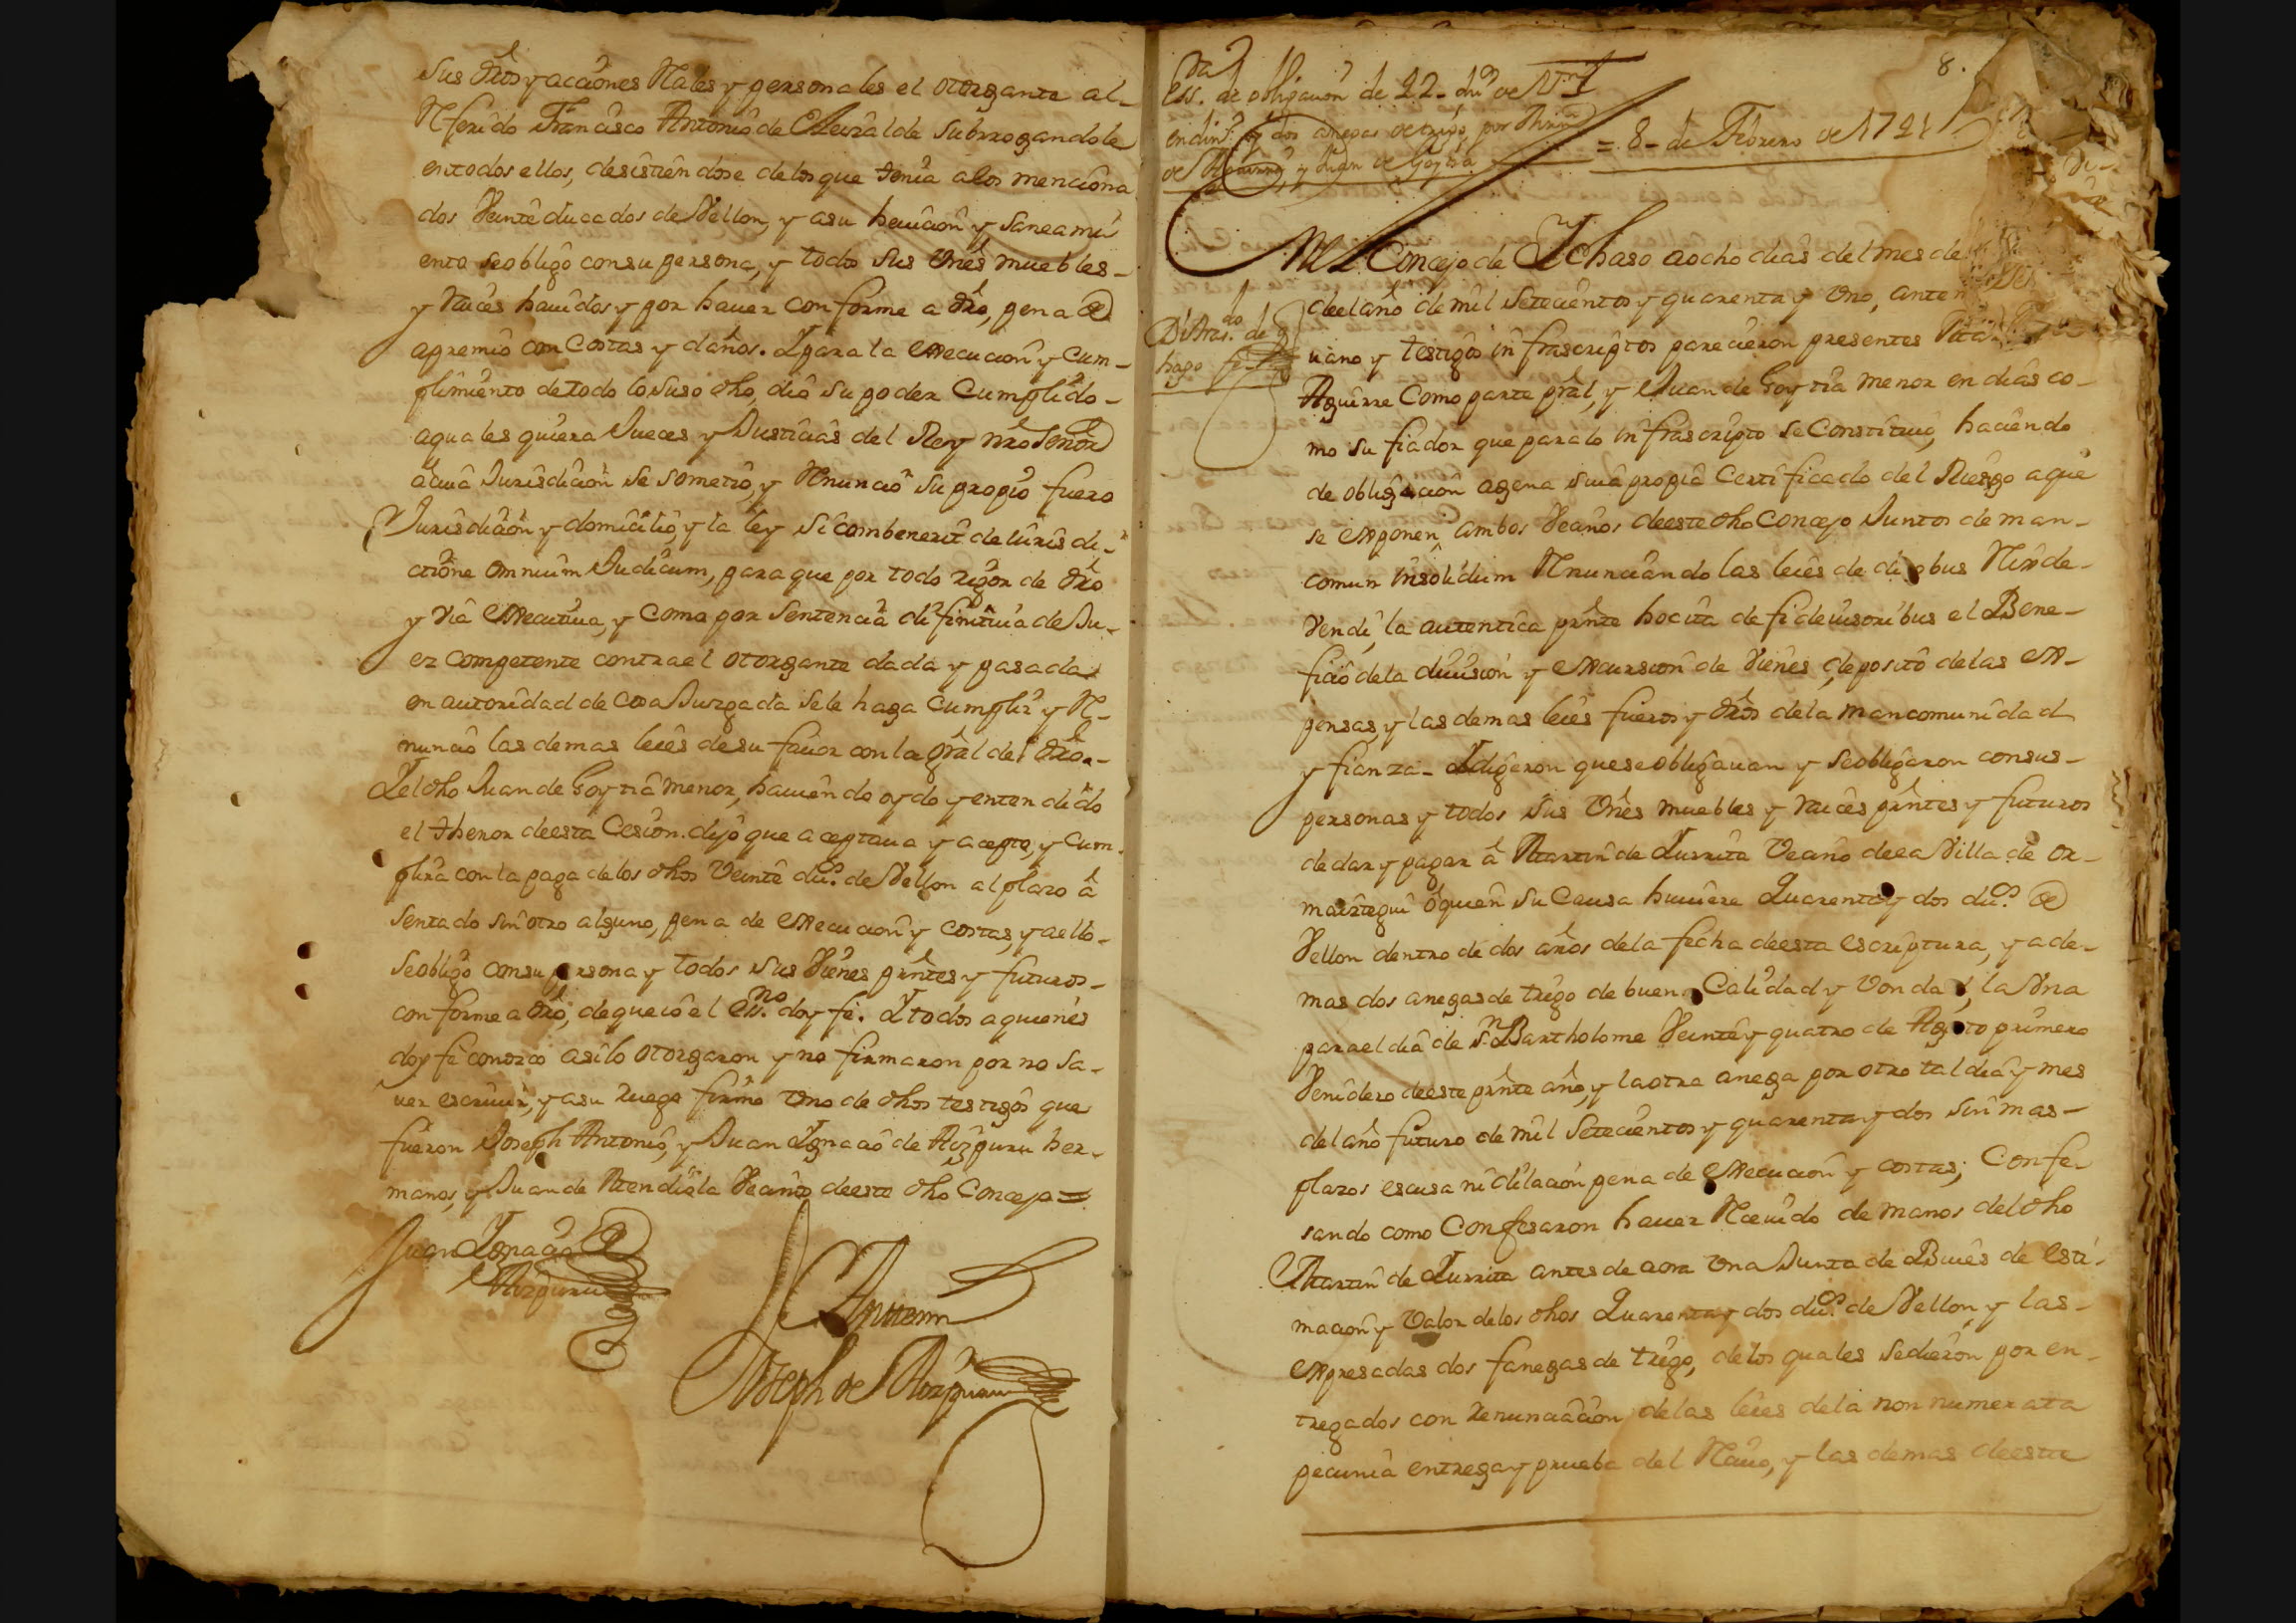 sus dros y acciones Reales y personales el otorgante al
Referido Francisco Antonio de Elexalde subrrogandole
en todos ellos, desistiendose de los que tenia a los menciona
dos Veinte ducados de Vellon, y a su heuicion y saneami
ento se obligo con su persona, y todos sus vnes muebles
y raices hauidos y por hauer conforme a dro, pena de
apremio con costas y daños. Y para la execucion y cum
plimiento de todo lo suso dho, dio su poder cumplido
a quales quiera Jueces y Justicias del Rey nro Señor
a cuia Jurisdicion se sometio, y Renuncio su propio fuero
Jurisdicion y domicilio, y la ley si combenerit de iuris di
ctione omnium Judicum, para que por todo rigor de dro
y via executiua, y como por sentencia difinitiua de Ju
ez competente contra el otorgante dada y pasada
en autoridad de cosa Juzgada se le haga cumplir y Re
nuncio las demas leies de su fauor con la gral del dro
Y el dho Juan de Goytia menor, hauiendo oydo y entendido
el thenor de esta Cesion. dijo que aceptaua y acepto, y cum
plira con la paga de los dhos Veinte dus. de Vellon al plazo a
sentado sin otro alguno, pena de execucion y costas, y a ello
se obligo con su persona y todos sus Vienes prntes y futuros
conforme a dro, de que io el essno. doy fe. Y todos a quienes
doy fe conozco asi lo otorgaron y no firmaron por no sa
uer escriuir, y a su ruego firmo vno de dhos testigos que
fueron Joseph Antonio, y Juan Ygnacio de Aizpuru her
manos, y Juan de Mendiola Vecinos de este dho Concejo =
Juan Ygnacio de
Aizpuru
Ante mi
Joseph de Aizpuru
8.
Essra. de obligacion de 42 dus de Vn
en din. y dos anegas de trigo, por Martin
de Aguirre, y Juan de Goytia
= 8 de Febrero de 1741
En el Concejo de Ychaso a ocho dias del mes de
de el año de mil setecientos y quarenta y vno, ante
uano y testigos infrascriptos parecieron presentes
Aguirre como parte pral, y Juan de Goytia menor en dias co
mo su fiador que para lo infrascripto se constituio, haciendo
de obligacion agena suia propia certificado del Riesgo a que
se exponen, ambos Vecinos de este dho Concejo Juntos de man
comun insolidum Renunciando las leies de duobus Rexde
vendi, la autentica prnte hocita de fideiusoribus el Bene
ficio de la diuision y excursion de Vienes, deposito de las ex
pensas, y las demas leies fueros y dros de la mancomunidad
y fianza. Y digeron que se obligauan y se obligaron con sus
personas y todos sus Vnes muebles y raices prntes y futuros
de dar y pagar a Martin de Yurrita Vecino de la Villa de Or
maiztegui o quien su causa huuiere Quarenta y dos dus. de
Vellon dentro de dos años de la fecha de esta escriptura, y ade
mas dos anegas de trigo de buena Calidad y Vondad, la Vna
para el dia de Sn Bartholome Veinte y quatro de Agosto primero
Venidero de este prnte año, y la otra anega por otro tal dia y mes
del año futuro de mil setecientos y quarenta y dos sin mas
plazos escusa ni dilacion pena de execucion y costas; Confe
sando como confesaron hauer Receuido de manos del dho
Martin de Yurrita antes de aora vna Junta de Bueies de esti
macion y valor de los dhos Quarenta y dos dus. de Vellon, y las
expresadas dos fanegas de trigo, de los quales se dieron por en
tregados con renunciacion de las leies de la non numerata
pecunia entrega y prueba del Reciuo, y las demas de esta